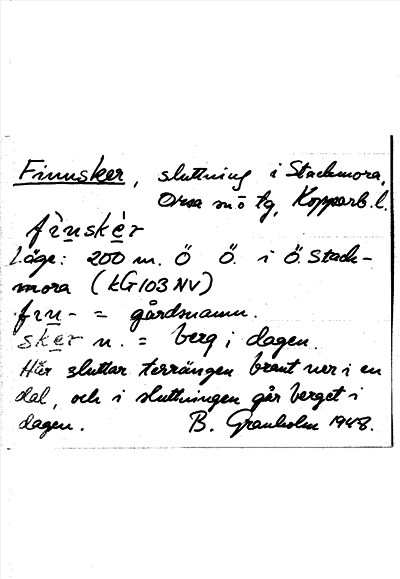 Finnsker, sluttning i Stackmora,
Orsa sn o tg, Kopparb.l.
fìnskèr
Läge: 200 m. Ö Ö. i Ö. Stack-
mora (KG 103 NV)
fin- = gårdsnamn.
sker n. = berg i dagen.
Här sluttar terrängen brant ner i en
dal, och i sluttningen går berget i
dagen. B. Granholm 1948.